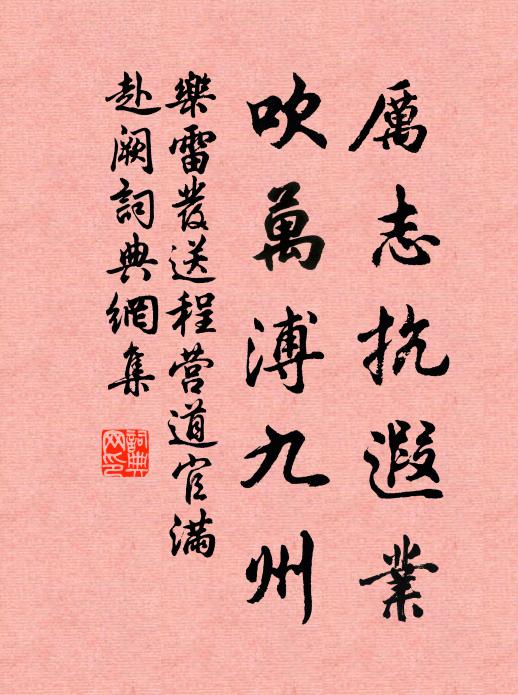 厲志抗遐業
吹萬溥九州
樂雷發送程营道官滿
赴阙詞典網集
詞典
网印